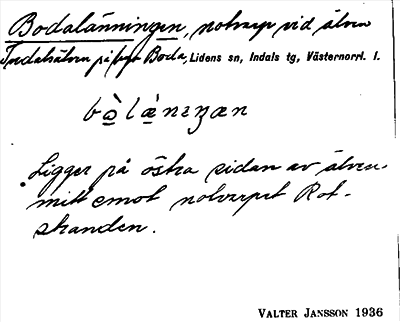 Bodalänningen, notvarp vid älven
Indalsälven på byn Boda, Lidens sn, Indals tg, Västernorrl. l.
bò̱là̱nıŋæn
Ligger på östra sidan av älven
mitt emot notvarpet Rot-
stranden.
VALTER JANSSON 1936